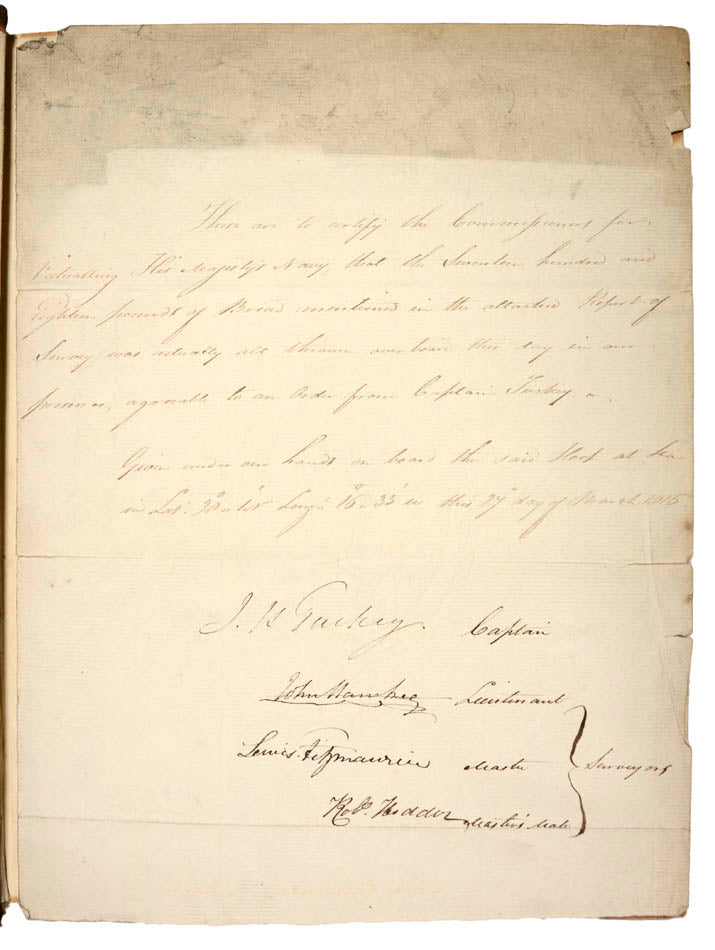 These are to certify the Commissioners for
Victualling His Majesty's Navy, that the Seventeen hundred and
Eighteen pounds of Bread mentioned in the attached Report of
Survey was actually all thrown overboard this day in our
presence, agreeable to an Order from Captain Tuckey
Given under our hands on board the said Sloop at Sea
in Lat. 30° Longe. 16° 35' this 27 day of March 1816
J. H Tuckey. Captain
John Hawkey Lieutenant
Lewis Fitzmaurice Master
Robt. Hodder Master's Mate
Surveyors